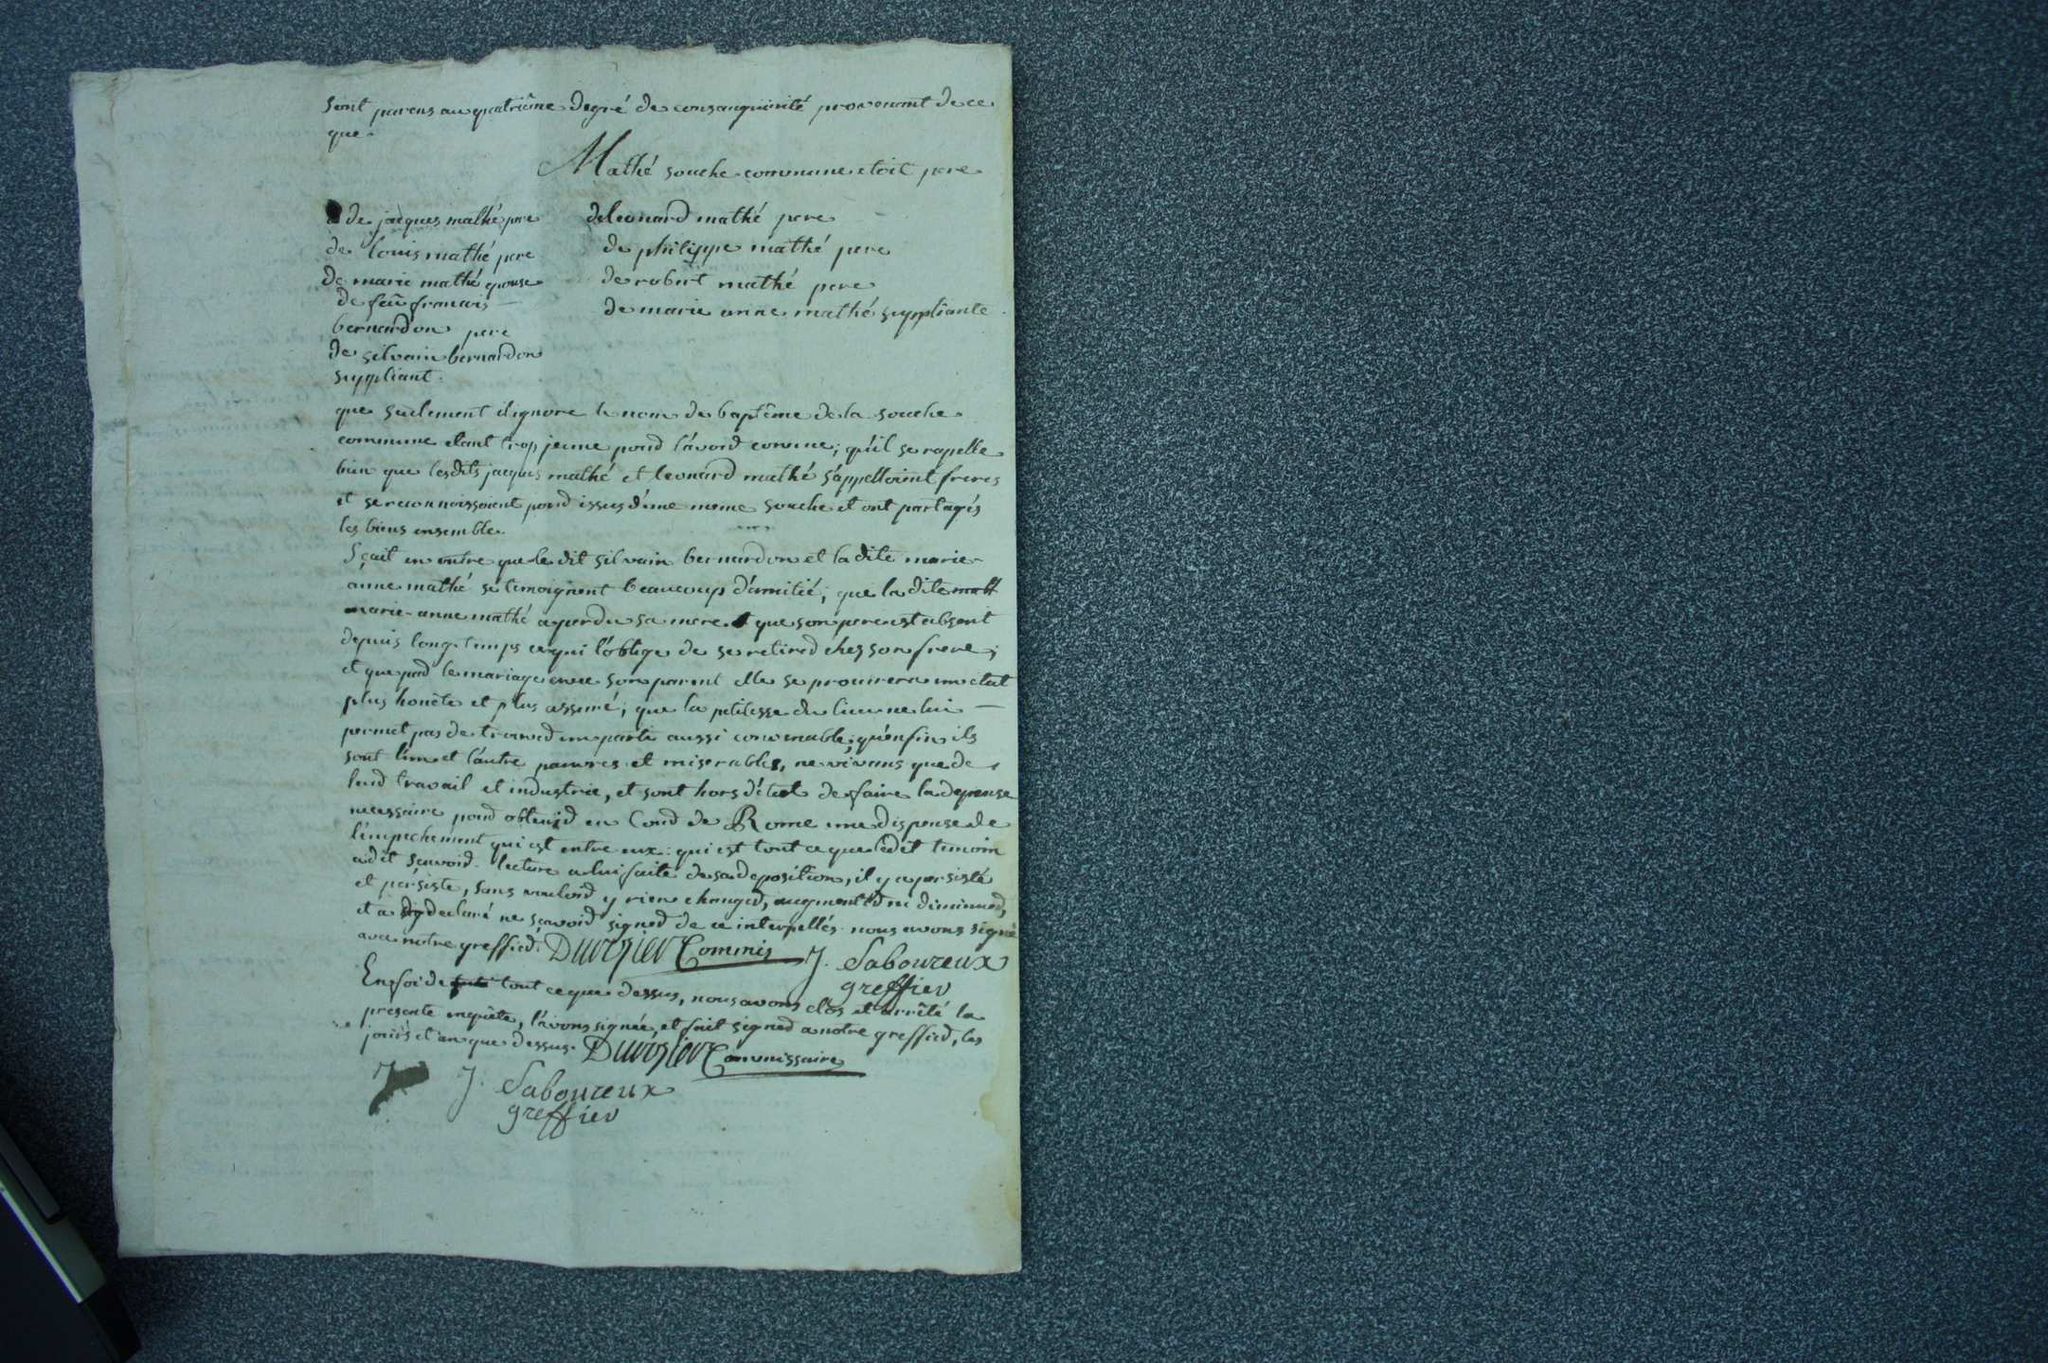 sont parens au quatrième degré de consanguinité provenant de ce
que
Mathé souche commune etoit pere
de jacques mathé pere
de louis mathé pere
de marie mathé epouse
de feu francois
bernardon pere
de silvain bernardon
suppliant.
de leonard mathé pere
de philippe mathé pere
de robert mathé pere
de marie anne mathé suppliante.
que seulement il ignore le nom de baptême de la souche
commune etant trop jeune pour l'avoir connue; qu'il se rapelle
bien que lesdits jacques mathé et leonard mathé s'appelloient freres
et se reconnoissoient pour issus d'une meme souche et ont partagés
les biens ensemble.
Sçait en outre que le dit silvain bernardon et la dite marie-
anne mathé se temoignent beaucoup d'amitié; que la dite
marie-anne mathé a perdu sa mere et que son pere est absent
depuis long-temps ce qui l'oblige de se retirer chez son frere;
et que par le mariage avec son parent elle se procurera un etat
plus honête et plus assuré; que la petitesse du lieu ne lui
permet pas de trouver un parti aussi convenable; qu'enfin ils
sont l'un et l'autre pauvres et miserables, ne vivans que de
leur travail et industrie, et sont hors d'état de faire la depense
necessaire pour obtenir en Cour de Rome une dispense de
l'empechement qui est entre eux: qui est tout ce que ledit temoin
a dit sçavoir. lecture a lui faite de sa deposition, il y a persisté
et persiste, sans vouloir y rien changer, augmenter ni diminuer,
et a declaré ne sçavoir signer de ce interpellés. nous avons signé
avec notre greffier. Duvosier Commis J. Saboureux
greffier
En foi de tout ce que dessus, nous avons clos et arrêté la
presente enquête, l'avons signée, et fait signer a notre greffier, les
jours et an que dessus. Duvosier Commissaire
J. Saboureux
greffier